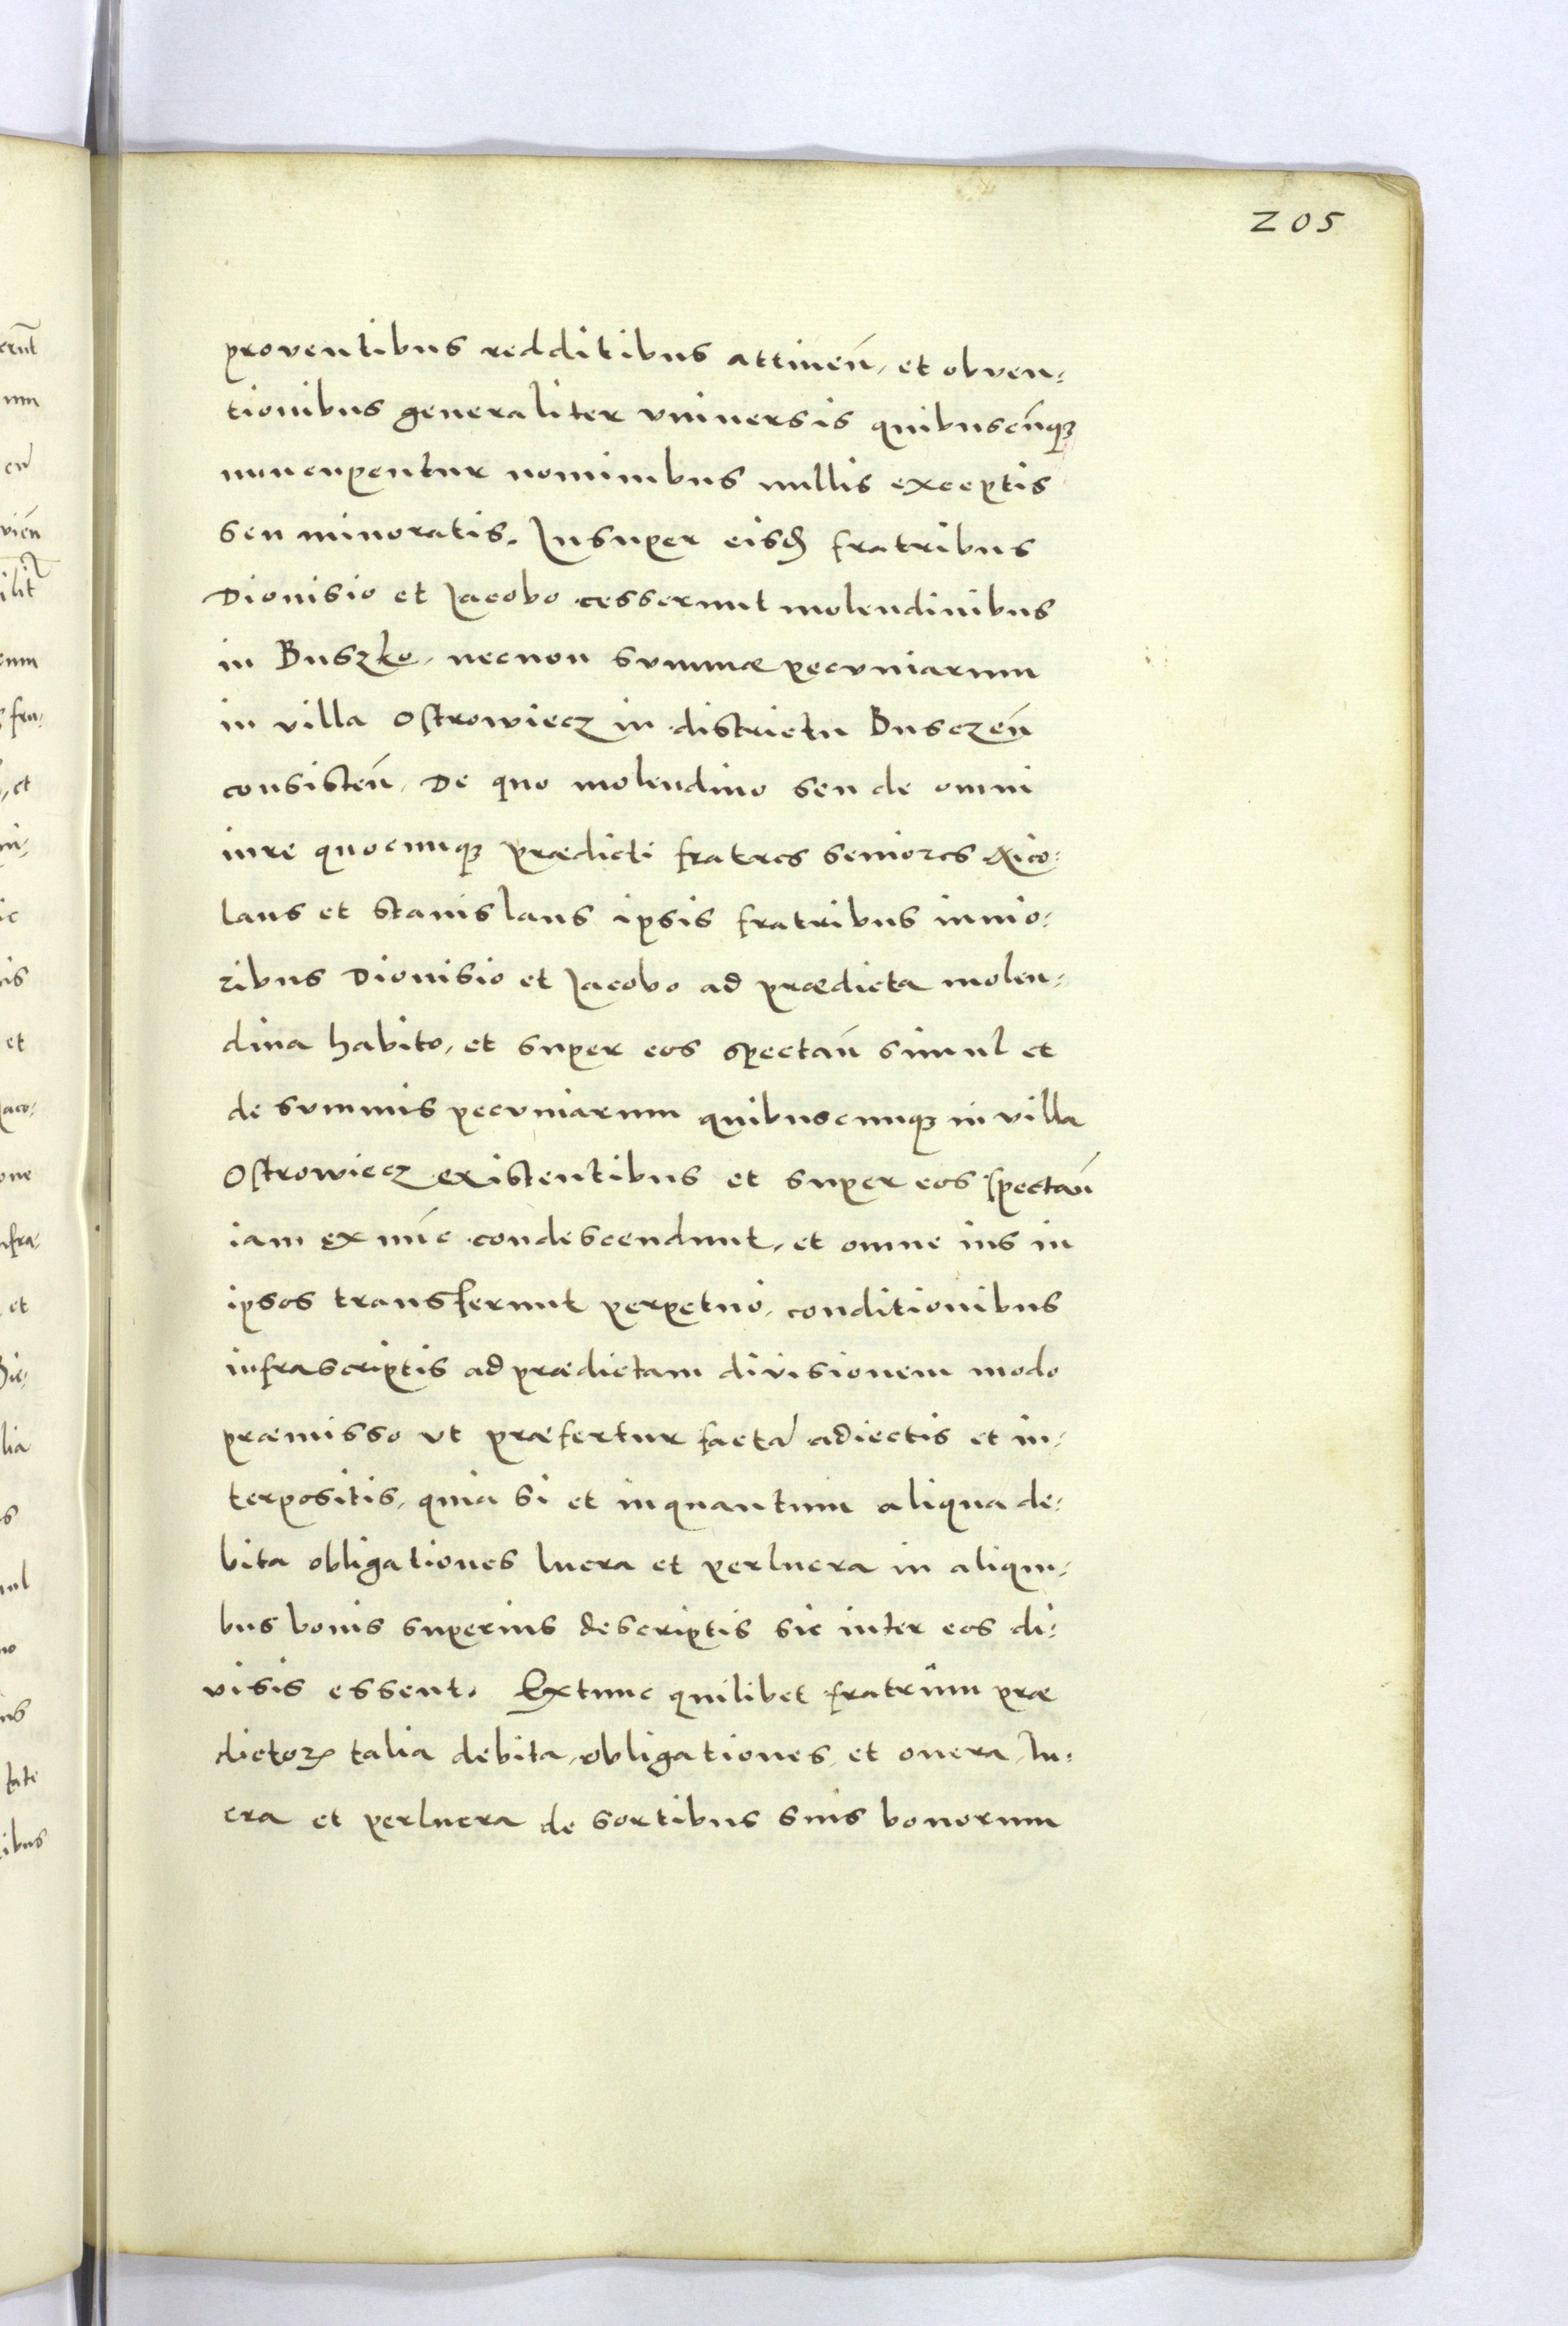 205
proventibus redditibus attineñ, et obven-
tionibus generaliter vniuersis quibuscũqꝫ
nuncupentur nominibus nullis exceptis
seu minoratis. Insuper eisd̃ fratribus
Dionisio et Iacobo cesserunt molendinibus
in Buszko, necnon summæ pecuniarum
in villa Ostrowiecz in districtu Busczeñ
consisteñ, De quo molendino seu de omni
iure quocunqꝫ prædicti fratres seniores Nico-
laus et Stanislaus ipsis fratribus iunio-
ribus Dionisio et Iacobo ad prædicta molen-
dina habito, et super eos spectañ simul et
de summis pecuniarum quibuscunqꝫ in villa
Ostrowiecz existentibus et super eos spectañ
iam ex nũc condescendunt, et omne ius in
ipsos transferunt perpetuò, conditionibus
infrascriptis ad prædictam divisionem modo
præmisso vt præfertur facta adiectis et in-
terpositis, quia si et inquantum aliqua de-
bita obligationes lucra et perlucra in aliqui-
bus bonis superius descriptis sic inter eos di-
visis essent. Extunc quilibet fratrum præ
dictoꝝ talia debita, obligationes, et onera, lu-
cra et perlucra de sortibus suis bonorum